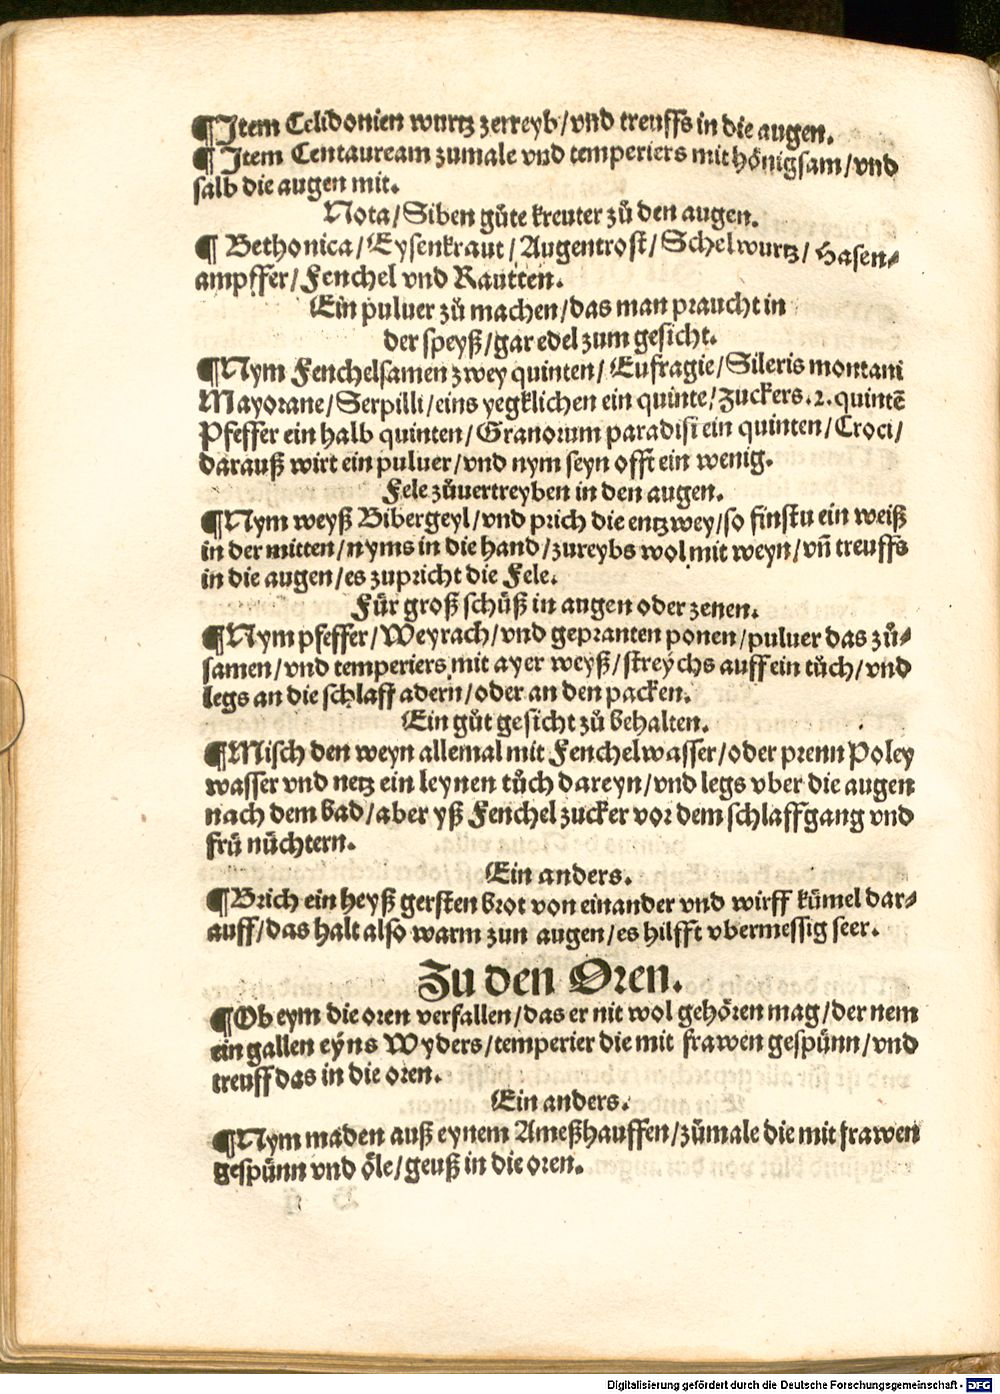 ¶Item Celidonien wurtz zerreyb/vnd treuffs in die augen.
¶ Item Centauream zumale vnd temperiers mit hönigsam/vnd
salb die augen mit.
Nota/Siben gůte kreuter zů den augen.
¶ Bethonica/Eysenkraut/Augentrost/Schelwurtz/Hasen⸗
ampffer/Fenchel vnd Rautten.
Ein puluer zů machen/das man praucht in
der speyß/gar edel zum gesicht.
¶Nym Fenchelsamen zwey quinten/Eufragie/Sileris montani
Mayorane/Serpilli/eins yegklichen ein quinte/Zuckers.2.quintē
Pfeffer ein halb quinten/Granorum paradisi ein quinten/Croci/
darauß wirt ein puluer/vnd nym seyn offt ein wenig.
Fele zůuertreyben in den augen.
¶Nym weyß Bibergeyl/vnd prich die entzwey/so finstu ein weiß
in der mitten/nyms in die hand/zureybs wol mit weyn/vñ treuffs
in die augen/es zupricht die Fele.
Für groß schüß in augen oder zenen.
¶Nym pfeffer/Weyrach/vnd gepranten ponen/puluer das zů⸗
samen/vnd temperiers mit ayer weyß/streychs auff ein tůch/vnd
legs an die schlaff adern/oder an den packen.
Ein gůt gesicht zů behalten.
¶Misch den weyn allemal mit Fenchelwasser/oder prenn Poley
wasser vnd netz ein leynen tůch dareyn/vnd legs vber die augen
nach dem bad/aber yß Fenchel zucker vor dem schlaffgang vnd
frü nüchtern.
Ein anders.
¶Brich ein heyß gersten brot von einander vnd wirff kümel dar⸗
auff/das halt also warm zun augen/es hilfft vbermessig seer.
Zu den Oren.
¶Ob eym die oren verfallen/das er nit wol gehören mag/der nem
ein gallen eyns Wyders/temperier die mit frawen gespünn/vnd
treuff das in die oren.
Ein anders.
¶Nym maden auß eynem Ameßhauffen/zůmale die mit frawen
gespünn vnd öle/geuß in die oren.
Digitalisierung gefördert durch die Deutsche Forschungsgemeinschaft - DFG